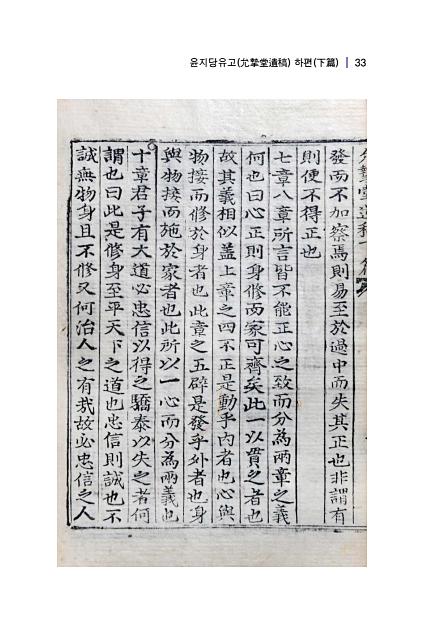 윤지당유고(允摯堂遺稿) 하편(下篇) | 33
發而不加察焉則易至於過中而失其正也非謂有
則便不得正也
七章八章所言皆不能正心之致而分為兩章之義
何也曰心正則身修而家可齊矣此一以貫之者也
故其義相似盖上章之四不正是動乎內者也心與
物接而修於身者也此章之五辟是發乎外者也身
與物接而施於家者也此所以一心而分為兩義也
十章君子有大道必忠信以得之驕泰以失之者何
謂也曰此是修身至平天下之道也忠信則誠也不
誠無物身且不修又何治人之有哉故必忠信之人